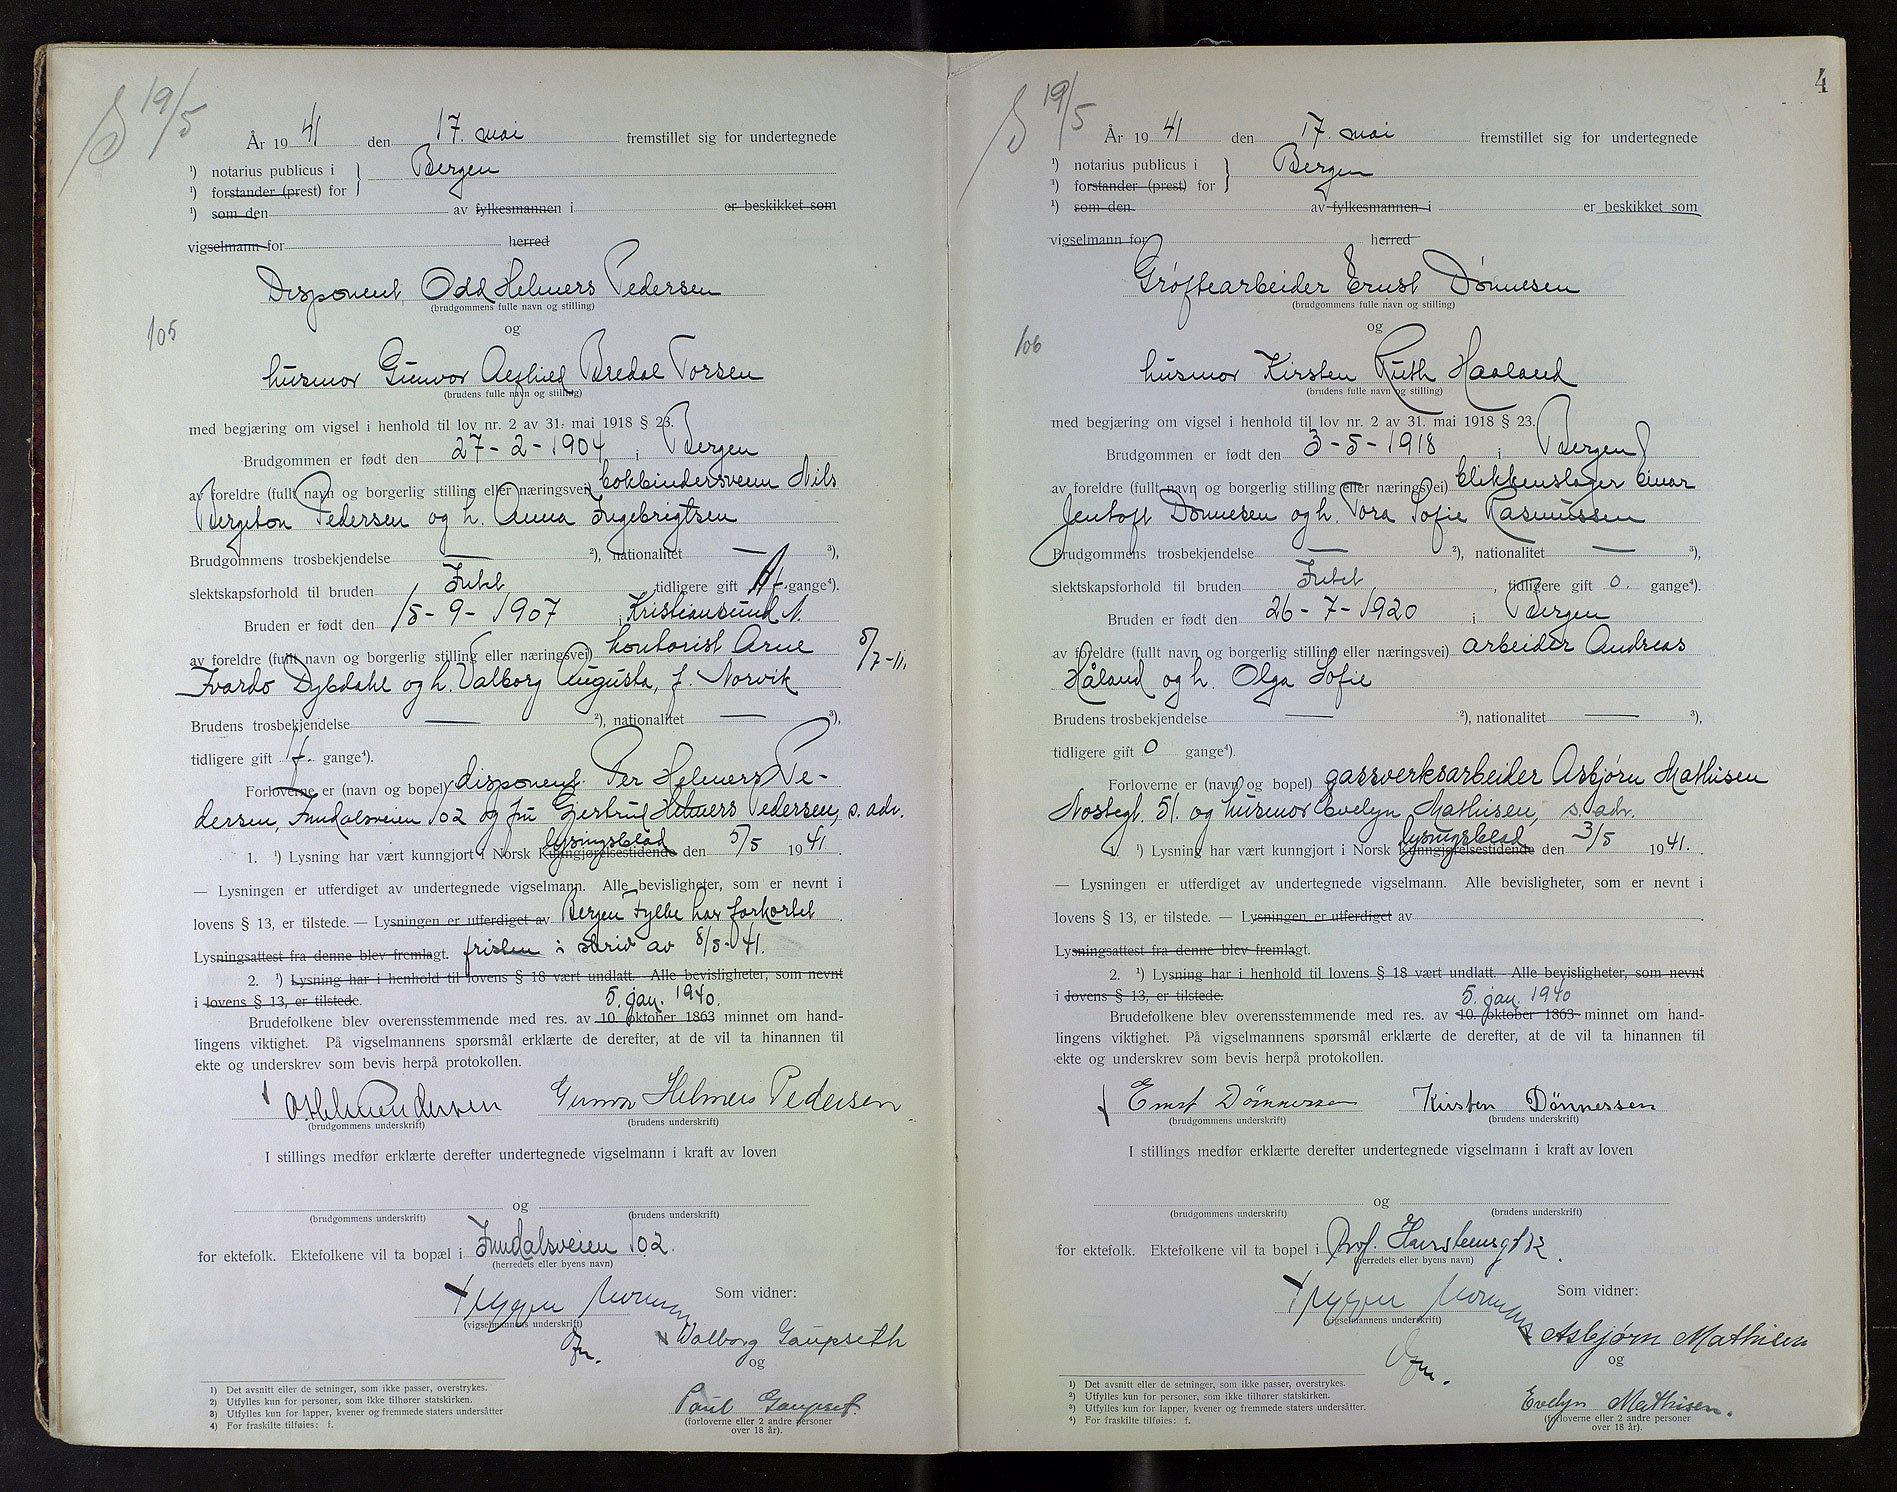 19/5
År 1941 den 17. mai fremstillet sig for undertegnede
¹) notarius publicus i } Bergen
¹) forstander (prest) for
¹) som den av fylkesmannen i er beskikket som
vigselmann for herred
Disponent Odd Helmers Pedersen
(brudgommens fulle navn og stilling)
og
105
husmor Gunvor Bredal Torsen
(brudens fulle navn og stilling)
med begjæring om vigsel i henhold til lov nr. 2 av 31. mai 1918 § 23.
Brudgommen er født den 27-2-1904 i Bergen
av foreldre (fullt navn og borgerlig stilling eller næringsvei) bokbindersvenn Nils
Bergiton Pedersen og h. Anna Ingebrigtsen
Brudgommens trosbekjendelse — ²), nationalitet — ³),
slektskapsforhold til bruden Intet tidligere gift 1 f. gange⁴).
Bruden er født den 15-9-1907 i Kristiansund N.
av foreldre (fullt navn og borgerlig stilling eller næringsvei) kontorist Arne
5/7-11.
Dybdahl og h. Valborg Augusta, f. Norvik
Brudens trosbekjendelse — ²), nationalitet — ³),
tidligere gift 1 f. gange⁴).
Forloverne er (navn og bopel) disponent Per Helmers Pe-
dersen, Inndalsveien 102 og fru Gjertrud Helmers Pedersen, s. adr.
1. ¹) Lysning har vært kunngjort i Norsk Kunngjørelsestidende lysingsblad den 5/5 1941.
— Lysningen er utferdiget av undertegnede vigselmann. Alle bevisligheter, som er nevnt i
lovens § 13, er tilstede. — Lysningen er utferdiget av Bergen Fylke har forkortet
Lysningsattest fra denne blev fremlagt. fristen i skriv av 8/5-41.
2. ¹) Lysning har i henhold til lovens § 18 vært undlatt. Alle bevisligheter, som nevnt
i lovens § 13, er tilstede. 5. jan. 1940.
Brudefolkene blev overensstemmende med res. av 10. oktober 1863 minnet om hand-
lingens viktighet. På vigselmannens spørsmål erklærte de derefter, at de vil ta hinannen til
ekte og underskrev som bevis herpå protokollen.
Gunvor Helmers Pedersen
(brudgommens underskrift) (brudens underskrift)
I stillings medfør erklærte derefter undertegnede vigselmann i kraft av loven
og
(brudgommens underskrift) (brudens underskrift)
for ektefolk. Ektefolkene vil ta bopæl i Inndalsveien 102.
(herredets eller byens navn)
Som vidner:
(vigselmannens underskrift)
Valborg Gaupseth
og
Paul Gaupset
(forloverne eller 2 andre personer
over 18 år).
1) Det avsnitt eller de setninger, som ikke passer, overstrykes.
2) Utfylles kun for personer, som ikke tilhører statskirken.
3) Utfylles kun for lapper, kvener og fremmede staters undersåtter
4) For fraskilte tilføies: f.
4
19/5
År 1941 den 17. mai fremstillet sig for undertegnede
¹) notarius publicus i } Bergen
¹) forstander (prest) for
¹) som den av fylkesmannen i er beskikket som
vigselmann for herred
Grøftearbeider Ernst Dönnesen
(brudgommens fulle navn og stilling)
og
106
husmor Kirsten Ruth Haaland
(brudens fulle navn og stilling)
med begjæring om vigsel i henhold til lov nr. 2 av 31. mai 1918 § 23.
Brudgommen er født den 3-5-1918 i Bergen
av foreldre (fullt navn og borgerlig stilling eller næringsvei) blikkenslager Einar
Jentoft Dönnesen og h. Tora Sofie Rasmussen
Brudgommens trosbekjendelse — ²), nationalitet — ³),
slektskapsforhold til bruden Intet, tidligere gift 0. gange⁴).
Bruden er født den 26-7-1920 i Bergen
av foreldre (fullt navn og borgerlig stilling eller næringsvei) arbeider Andreas
Håland og h. Olga Sofie
Brudens trosbekjendelse — ²), nationalitet — ³),
tidligere gift 0 gange⁴).
Forloverne er (navn og bopel) gassverksarbeider Asbjørn Mathisen
Nostegt. 51. og husmor Evelyn Mathisen, s. adr.
1. ¹) Lysning har vært kunngjort i Norsk Kunngjørelsestidende lysingsblad den 3/5 1941.
— Lysningen er utferdiget av undertegnede vigselmann. Alle bevisligheter, som er nevnt i
lovens § 13, er tilstede. — Lysningen er utferdiget av
Lysningsattest fra denne blev fremlagt.
2. ¹) Lysning har i henhold til lovens § 18 vært undlatt. Alle bevisligheter, som nevnt
i lovens § 13, er tilstede. 5. jan. 1940
Brudefolkene blev overensstemmende med res. av 10. oktober 1863 minnet om hand-
lingens viktighet. På vigselmannens spørsmål erklærte de derefter, at de vil ta hinannen til
ekte og underskrev som bevis herpå protokollen.
Ernst Dönnessen Kirsten Dönnessen
(brudgommens underskrift) (brudens underskrift)
I stillings medfør erklærte derefter undertegnede vigselmann i kraft av loven
og
(brudgommens underskrift) (brudens underskrift)
for ektefolk. Ektefolkene vil ta bopel i Prof. Hansteensgt 12.
(herredets eller byens navn)
Som vidner:
(vigselmannens underskrift)
Asbjørn Mathisen
og
Evelyn Mathisen.
(forloverne eller 2 andre personer
over 18 år).
1) Det avsnitt eller de setninger, som ikke passer, overstrykes.
2) Utfylles kun for personer, som ikke tilhører statskirken.
3) Utfylles kun for lapper, kvener og fremmede staters undersåtter.
4) For fraskilte tilføies: f.